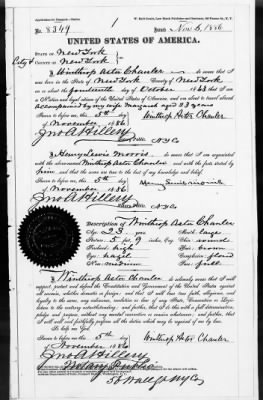 No. 8349 Issued Nov 5, 1886
UNITED STATES OF AMERICA.
STATE OF New York
City & COUNTY OF New York
I Winthrop Astor Chanler do swear that I
was born in the State of New York County of New York
on or about the fourteenth day of October 1863 that I am
a Native and loyal citizen of the United States of America, and about to travel abroad
accompanied by my wife Margaret aged 23 years
Sworn to before me, this 5th day Winthrop Astor Chanler
of November 1886
Jno A Hillery
NYCo
I Henry Lewis Morris do swear that I am acquainted
with the abovenamed Winthrop Astor Chanler and with the facts stated by
him, and that the same are true to the best of my knowledge and belief.
Sworn to before me, this 5th day
of November 1886 Henry Lewis Morris
Jno A Hillery
NYCo
Description of Winthrop Astor Chanler
Age: 23 yrs Mouth: large
Stature: 5 ft 9 inches Eng. Chin: round
Forehead: high Hair: brown
Eyes: hazel Complexion: florid
Nose: medium Face: full
I Winthrop Astor Chanler do solemnly swear that I will
support, protect and defend the Constitution and Government of the United States against
all enemies, whether domestic or foreign; and that I will bear true faith, allegiance, and
loyalty to the same, any ordinance, resolution or law of any State, Convention or Legis-
lature to the contrary notwithstanding; and further, that I do this with a full determination,
pledge and purpose, without any mental reservation or evasion whatsoever; and further, that
I will well and faithfully perform all the duties which may be required of me by law.
So help me God.
Sworn to before me, this 5th day Winthrop Astor Chanler
of November 1886
Jno A Hillery
Notary Public
50 Wall St NYCo